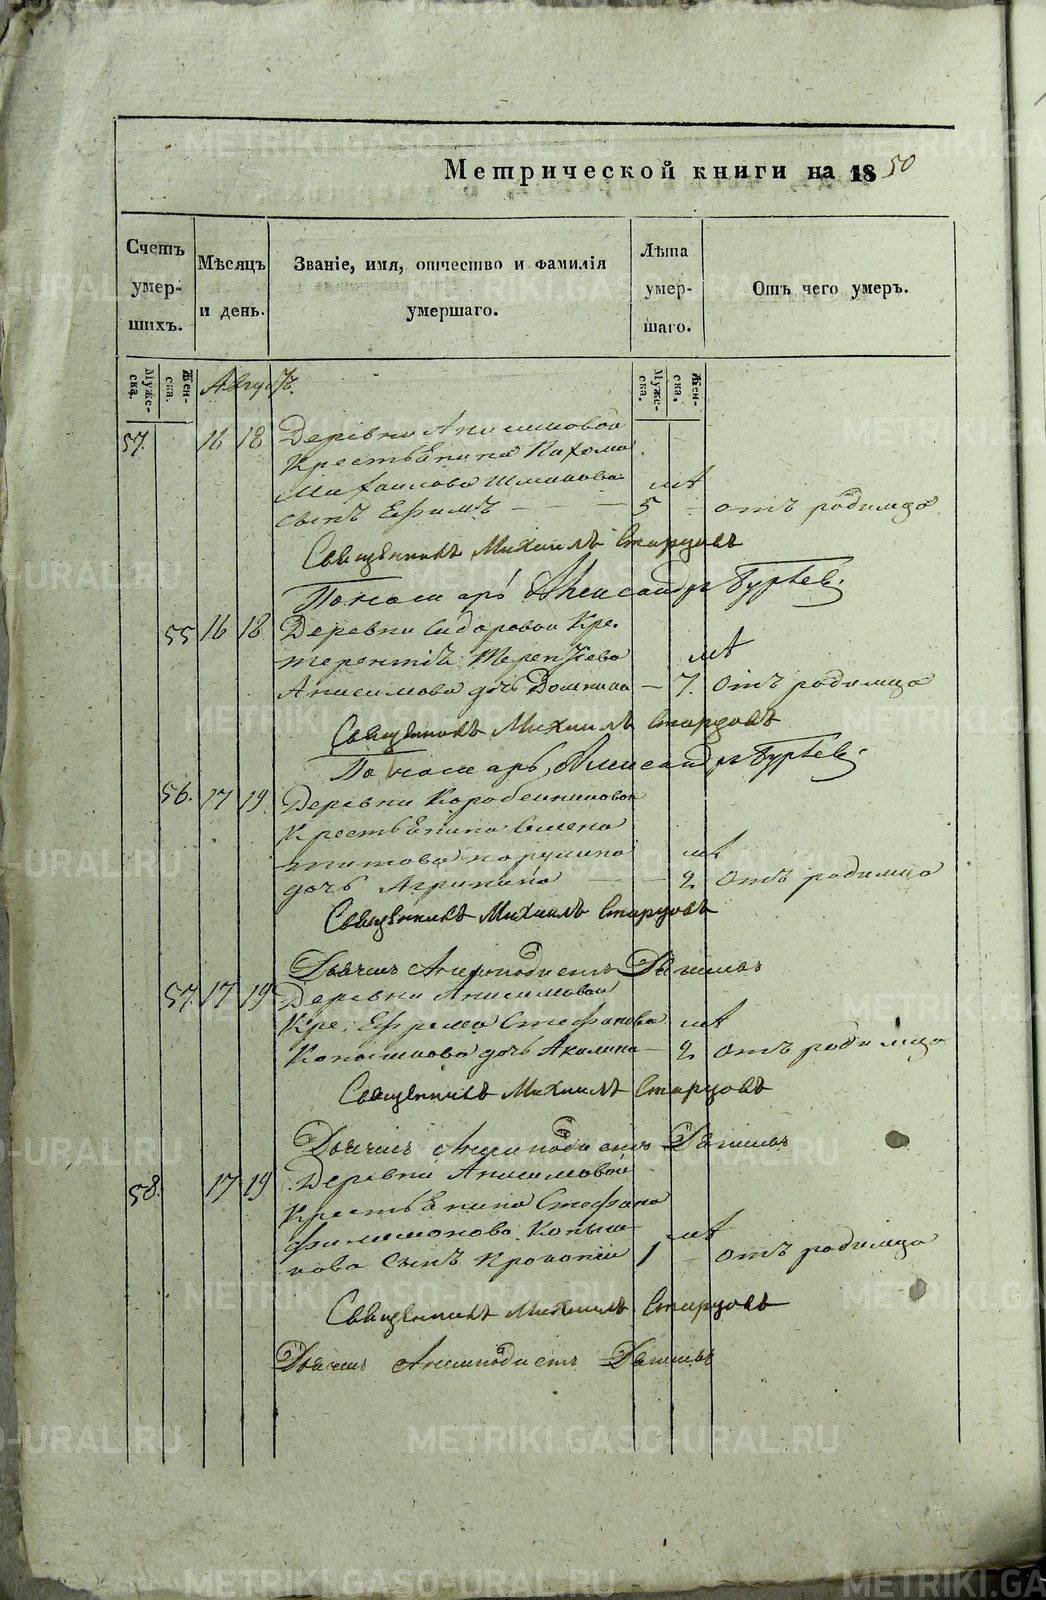 Метрической книги на 1850
Счетъ умершихъ.
Мѣсяцъ и день.
Званіе, имя, отчество и фамилія умершаго.
Лѣта умершаго.
Отъ чего умеръ.
Мужеска.
Женска.
Августъ.
Мужеска.
Женска.
57. 16 18 Деревни Анисимовой
Крестьянина Пахома
Михаилова
сынъ Ефимъ 5 лѣ отъ родимца
Священникъ Михаилъ Старцовъ
Пономарь Александръ Гурьев.
55 16 18 Деревни Сидоровой Кре.
Терентія Терентьева
Анисимова дочь 7. лѣ отъ родимца
Священникъ Михаилъ Старцовъ
Пономарь Александръ Гурьев.
56. 17 19. Деревни Коробейниковой
Крестьянина Симеона
Титова
дочь Агрипина 2 лѣ отъ родимца
Священникъ Михаилъ Старцовъ
Дьячекъ
57. 17 19 Деревни Анисимовой
Кре. Ефрема Стефанова
дочь Акилина 2 лѣ отъ родимца
Священникъ Михаилъ Старцовъ
Дьячекъ
58. 17 19 Деревни Анисимовой
Крестьянина Стефана
Филимонова Копыш-
кова сынъ 1 лѣ отъ родимца
Священникъ Михаилъ Старцовъ
Дьячекъ
METRIKI.GASO-URAL.RU